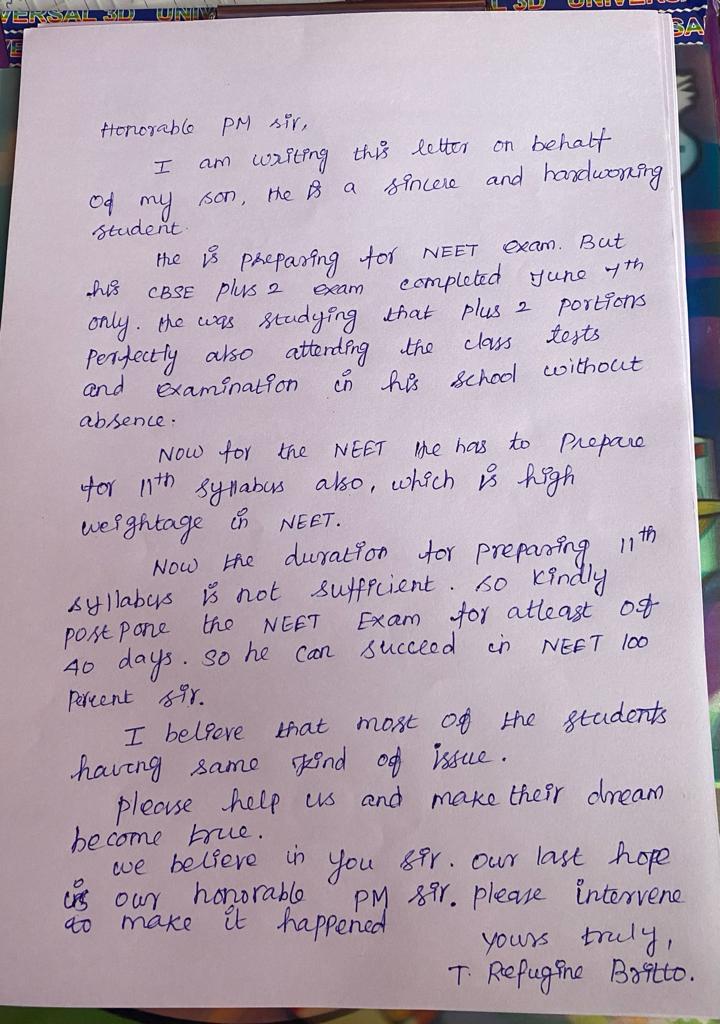 VERSAL 3D UNIV
L 3D UNIVER
SA
Honorable PM sir,
I am writing this letter on behalf
of my son, He is a sincere and hardworking
student.
He is preparing for NEET exam. But
his CBSE plus 2 exam completed June 7th
only. He was studying that plus 2 portions
perfectly also attending the class tests
and examination in his school without
absence.
Now for the NEET He has to Prepare
for 11th syllabus also, which is high
weightage in NEET.
Now the duration for preparing 11th
syllabus is not sufficient. so kindly
postpone the NEET Exam for atleast of
40 days. so he can succeed in NEET 100
Percent sir.
I believe that most of the students
having same kind of issue.
please help us and make their dream
become true.
we believe in you sir. our last hope
is our honorable PM sir. please intervene
to make it happened
yours truly,
T. Refugine Britto.